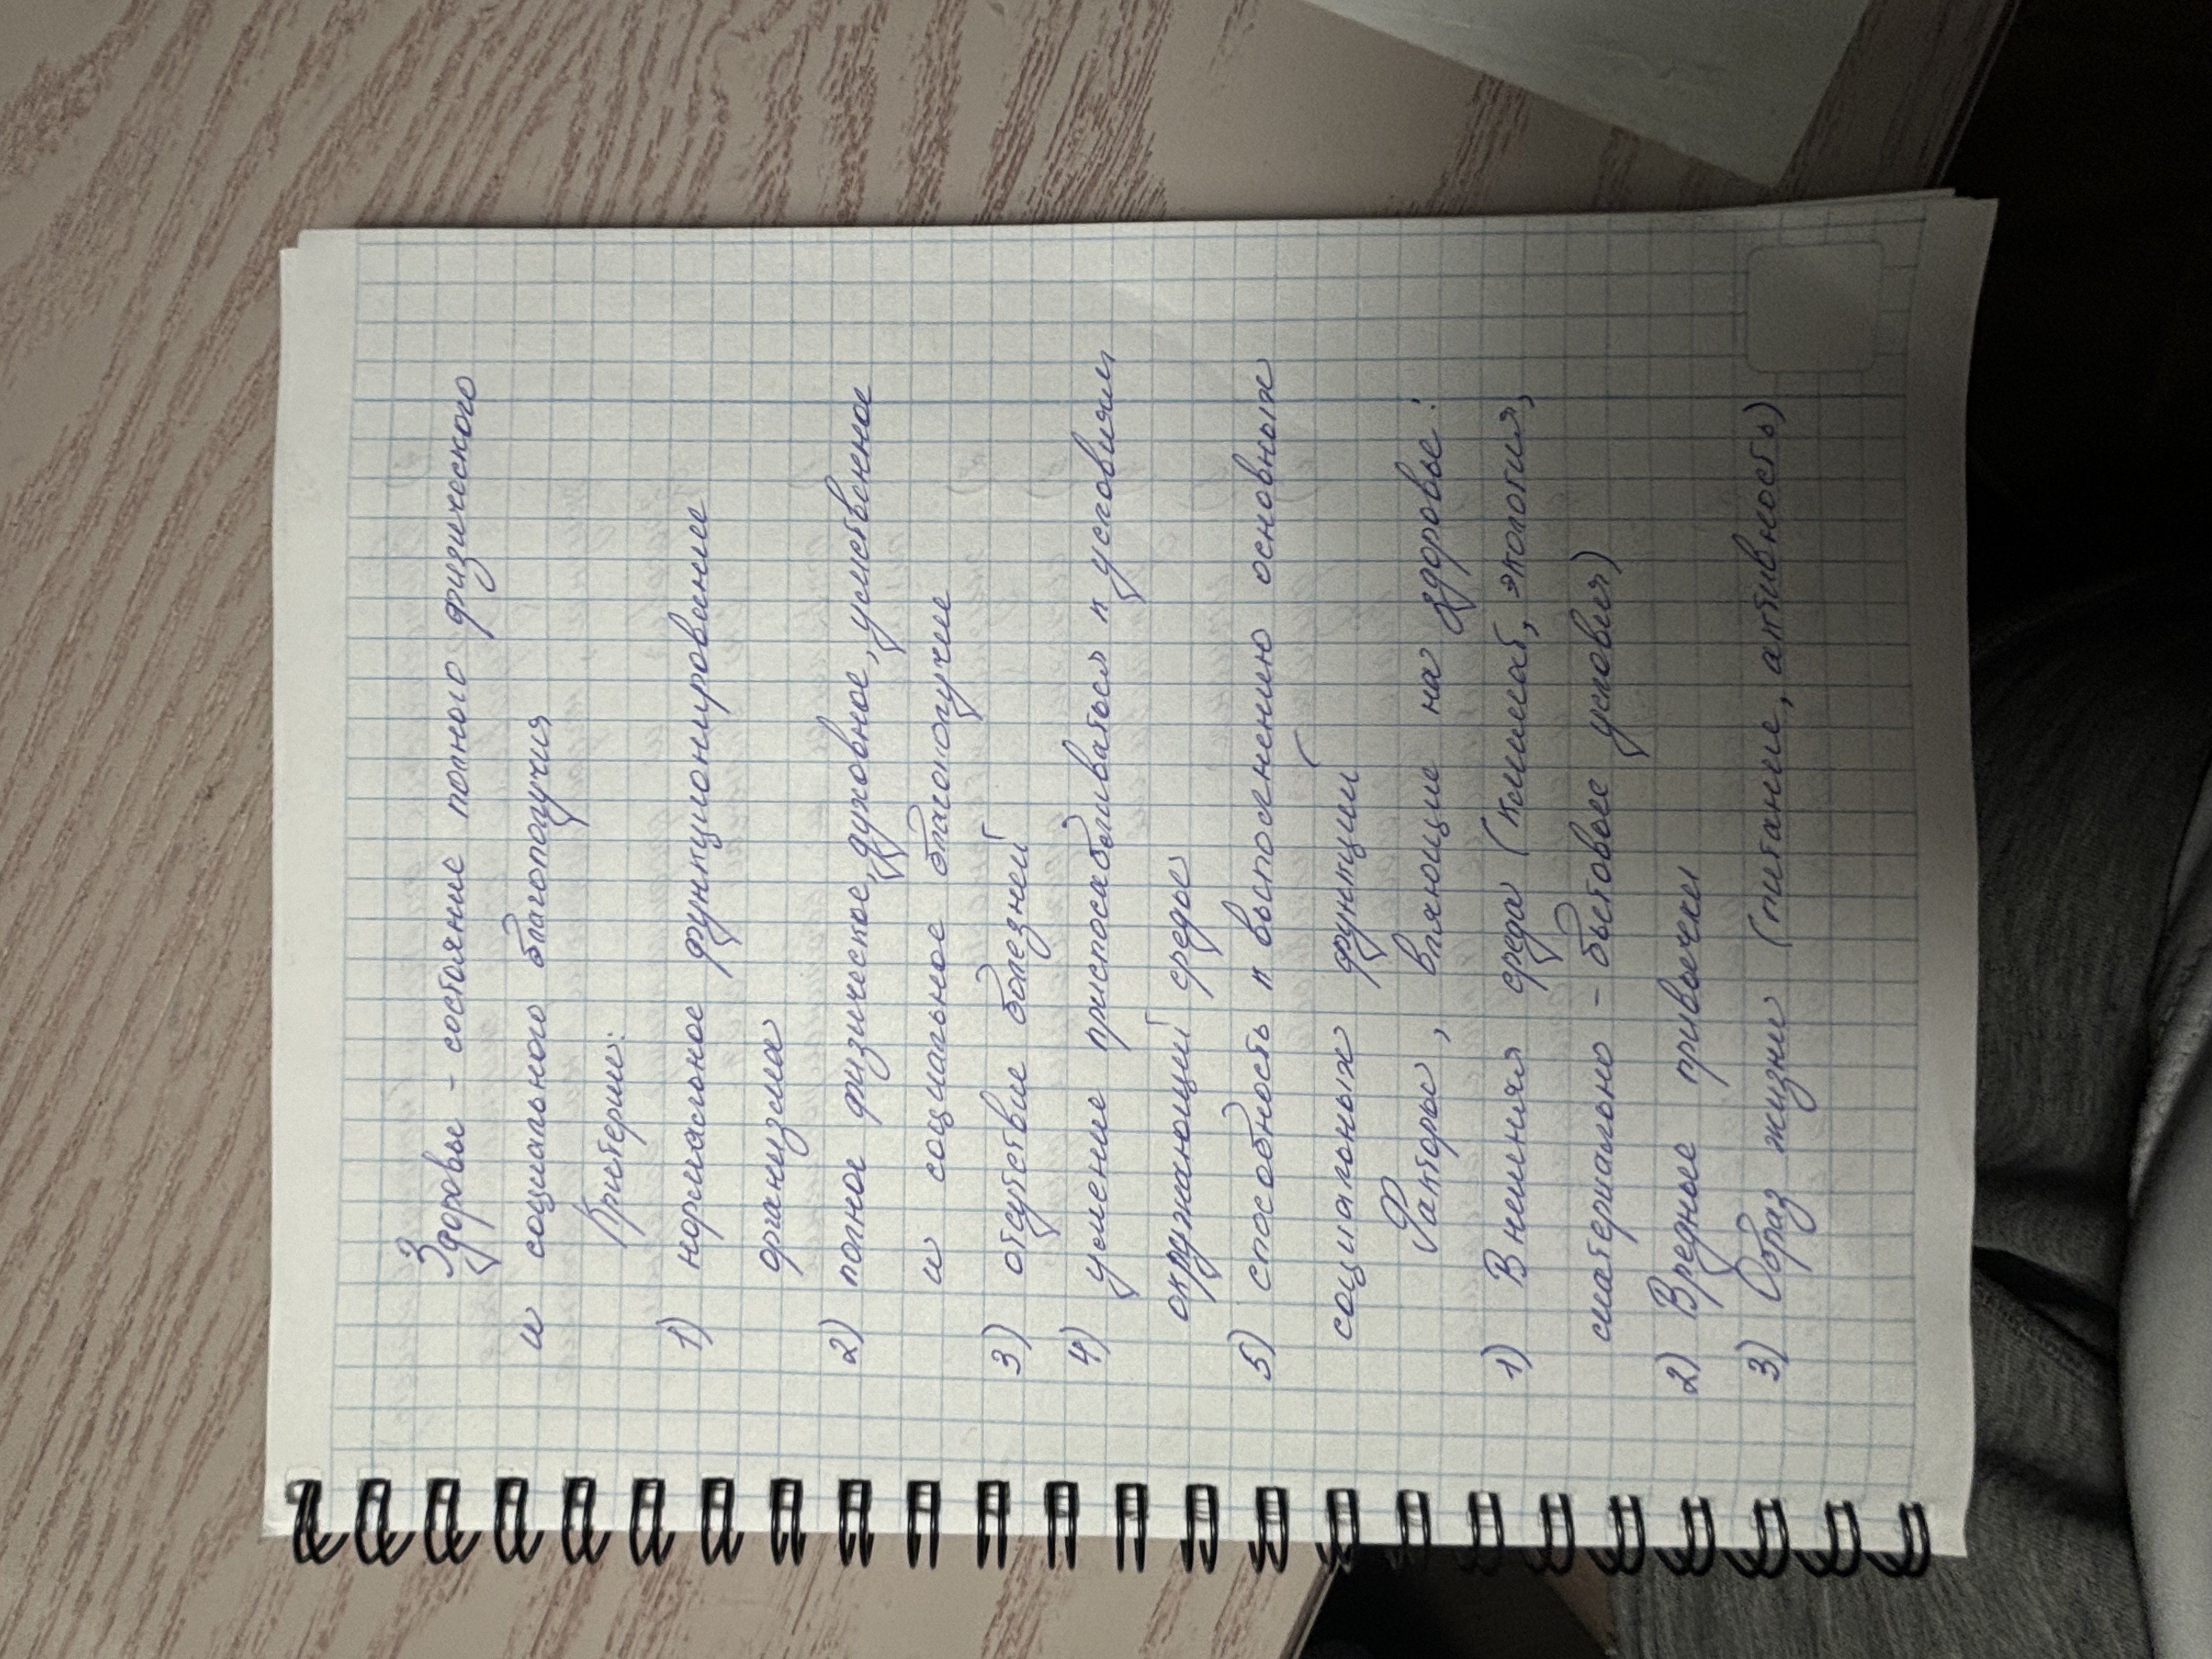 Здоровье - состояние полного физического
и социального благополучия
Критерии:
1) нормальное функционирование
организма
2) полное физическое, духовное, умственное
и социальное благополучие
3) отсутствие болезней
4) умение приспосабливаться к условиям
окружающей среды
5) способность к выполнению основных
социальных функций
Факторы, влияющие на здоровье:
1) Внешняя среда (климат, экология,
материально - бытовые условия)
2) Вредные привычки
3) Образ жизни (питание, активность)